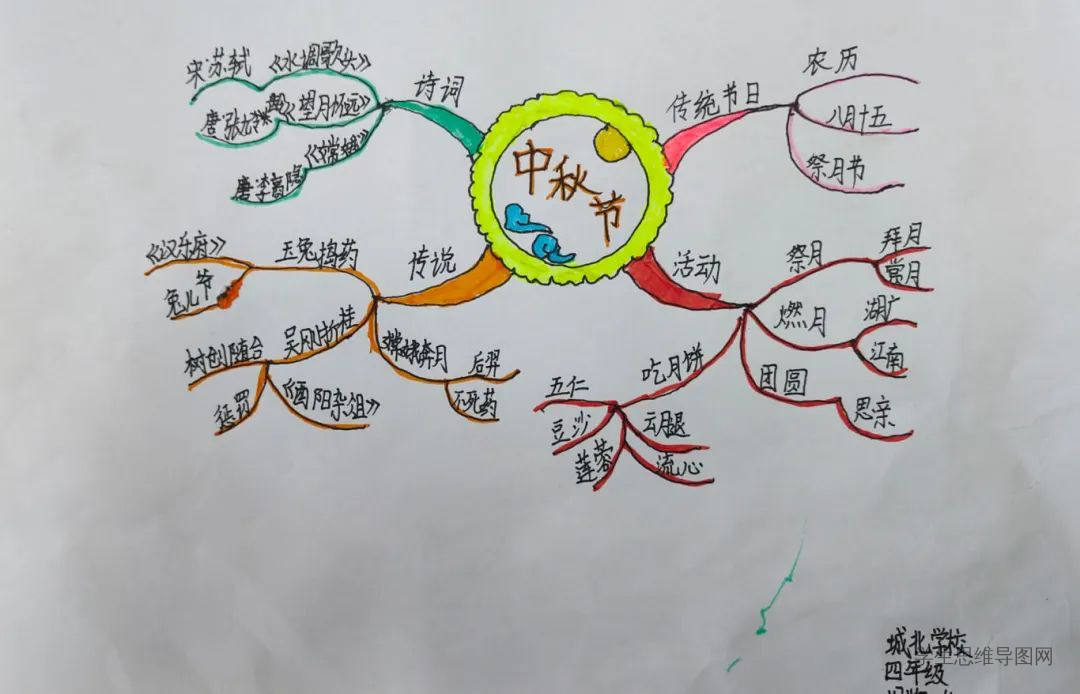 中秋节
传统节日
农历
八月十五
祭月节
活动
祭月
拜月
赏月
燃月
湖广
江南
团圆
思亲
吃月饼
五仁
豆沙
莲蓉
云腿
流心
传说
玉兔捣药
《汉乐府》
兔儿爷
吴刚折桂
树创随合
惩罚
《酉阳杂俎》
嫦娥奔月
后羿
不死药
诗词
《水调歌头》
宋苏轼
《望月怀远》
唐张九龄
《嫦娥》
唐李商隐
城北学校
四年级
思维导图网